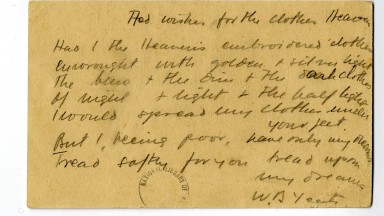 Aed wishes for the clothes Heaven
Had I the Heavens embroidered clothes
Enwrought with golden & silver light
The blue & the dim & the dark clothes
Of night & light & the half light
I would spread my clothes under
your feet.
But I, being poor, have only my dreams
tread softly for you tread upon
my dreams
W.B Yeats